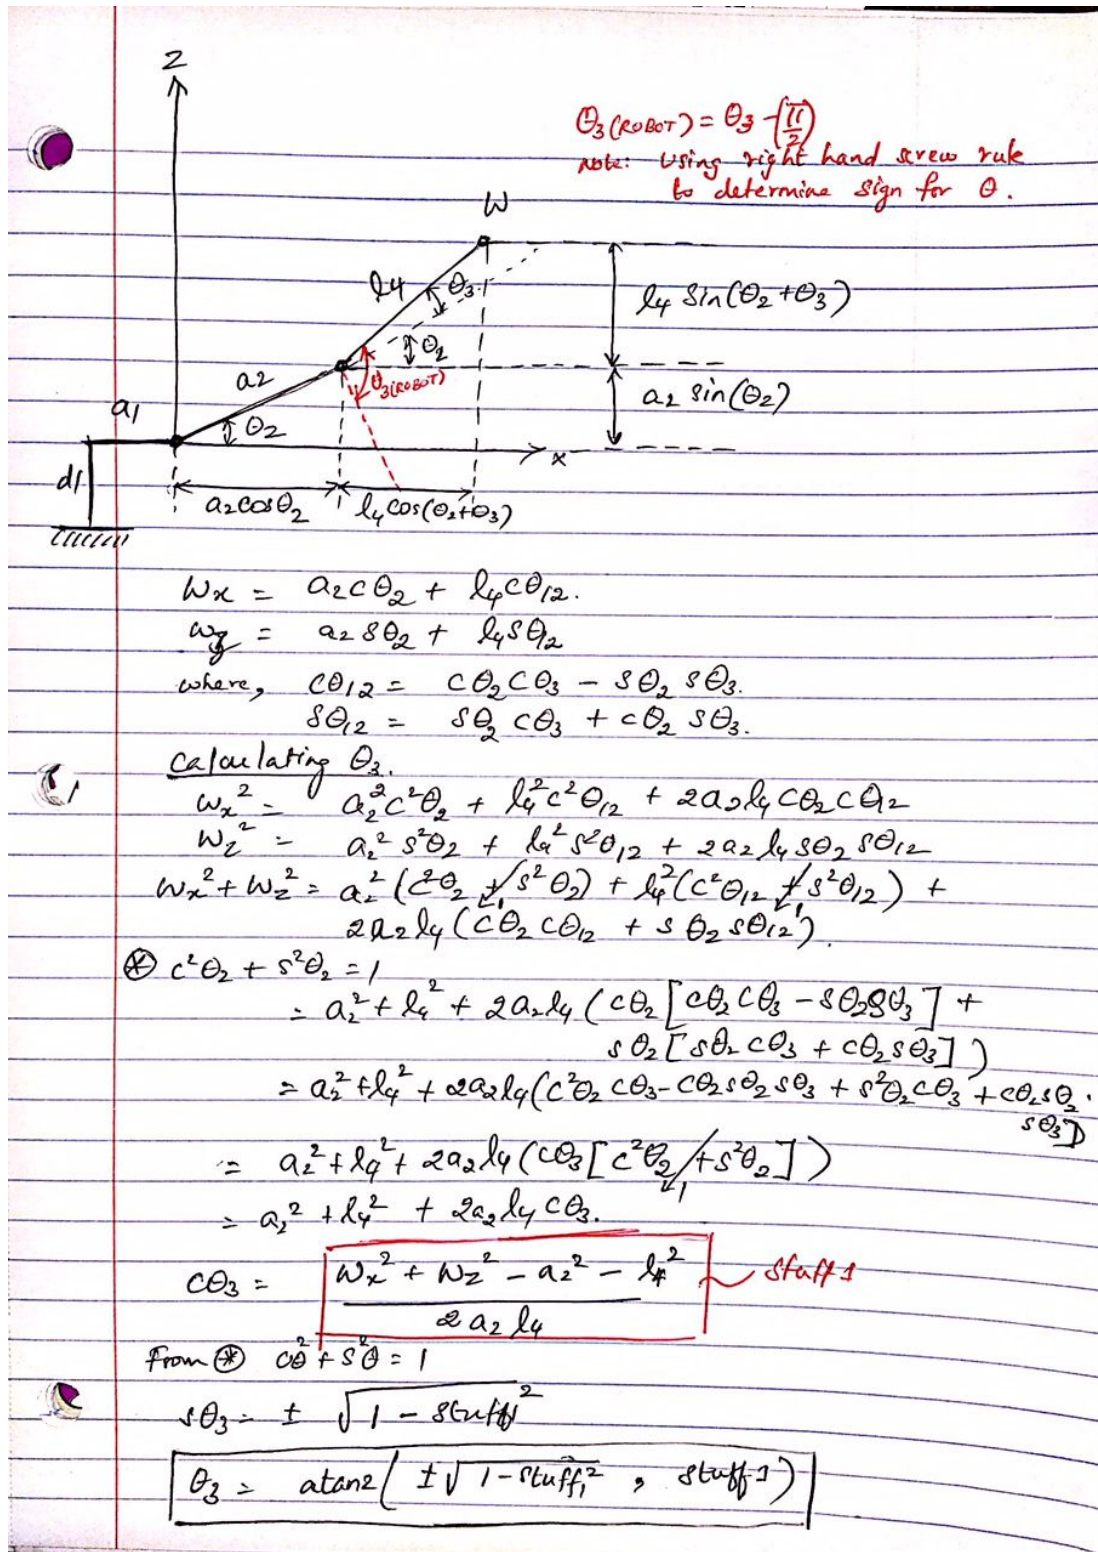 Z
θ3(ROBOT) = θ3 - (π/2)
Note: Using right hand screw rule
to determine sign for θ.
W
l4
θ3
l4 sin(θ2+θ3)
θ2
a2
θ3(ROBOT)
a2 sin(θ2)
a1
θ2
x
d1
a2cosθ2
l4cos(θ2+θ3)
Wx = a2cθ2 + l4cθ12.
wz = a2sθ2 + l4sθ12
where, cθ12 = cθ2cθ3 - sθ2sθ3.
sθ12 = sθ2cθ3 + cθ2sθ3.
Calculating θ3.
wx² = a2²c²θ2 + l4²c²θ12 + 2a2l4cθ2cθ12
Wz² = a2²s²θ2 + l4²s²θ12 + 2a2l4sθ2sθ12
Wx² + Wz² = a2²(c²θ2 + s²θ2) + l4²(c²θ12 + s²θ12) +
1 1
2a2l4(cθ2cθ12 + sθ2sθ12).
⊛ c²θ2 + s²θ2 = 1
= a2² + l4² + 2a2l4(cθ2[cθ2cθ3 - sθ2sθ3] +
sθ2[sθ2cθ3 + cθ2sθ3])
= a2² + l4² + 2a2l4(c²θ2cθ3 - cθ2sθ2sθ3 + s²θ2cθ3 + cθ2sθ2.
sθ3])
= a2² + l4² + 2a2l4(cθ3[c²θ2 + s²θ2])
1
= a2² + l4² + 2a2l4cθ3.
cθ3 = (Wx² + Wz² - a2² - l4²) / (2a2l4) stuff1
From ⊛ cθ² + s²θ = 1
sθ3 = ± √(1 - stuff1²)
θ3 = atan2(±√(1-stuff1²), stuff1)